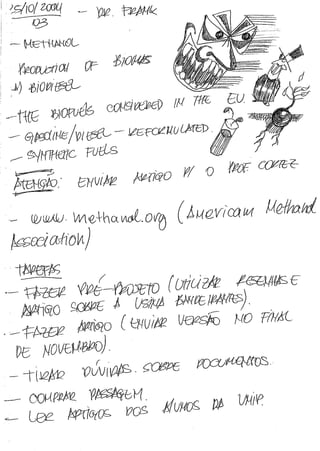 15/10/2004 - DR. FRANK
03
- METHANOL
PRODUCTION OF BIOMASS
A) BIODIESEL
- THE BIOFUELS CONSIDERED IN THE EU.
- GASOLINE/DIESEL - REFORMULATED.
- SYNTHETIC FUELS
ATENÇÃO: ENVIAR ARTIGO P/ O PROF CORTEZ
- www.methanol.org (American Methanol
Association)
TAREFAS
- FAZER PRÉ-PROJETO (UTILIZAR RESENHAS E
ARTIGO SOBRE A USINA BANDEIRANTES).
- FAZER ARTIGO (ENVIAR VERSÃO NO FINAL
DE NOVEMBRO).
- TIRAR DÚVIDAS SOBRE DOCUMENTOS.
- COMPRAR PASSAGEM.
- LER ARTIGOS DOS ALUNOS DA UNIP.